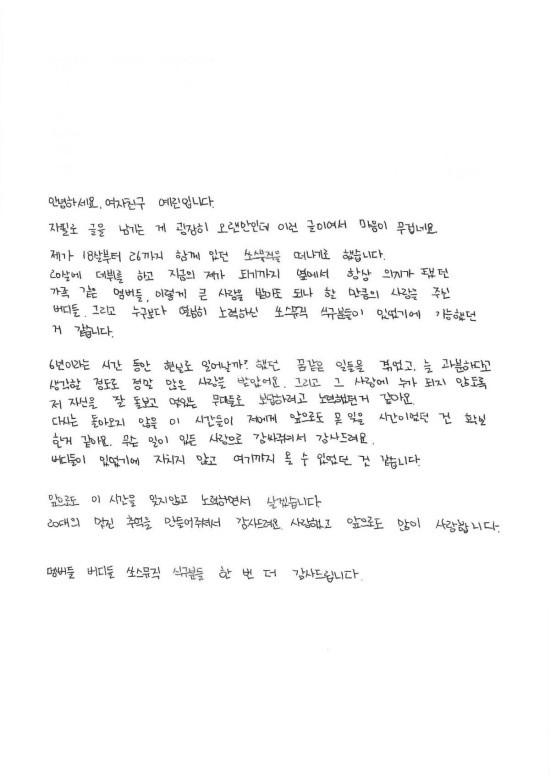 안녕하세요. 여자친구 예린입니다.
자필로 글을 남기는 게 굉장히 오랜만인데 이런 글이여서 마음이 무겁네요.
제가 18살부터 26까지 함께 있던 쏘스뮤직을 떠나기로 했습니다.
20살에 데뷔를 하고 지금의 제가 되기까지 옆에서 항상 의지가 돼줬던
가족 같은 멤버들, 이렇게 큰 사랑을 받아도 되나 할 만큼의 사랑을 주신
버디들. 그리고 누구보다 열심히 노력하신 쏘스뮤직 식구분들이 있었기에 가능했던
거 같습니다.
6년이라는 시간 동안 현실로 일어날까? 했던 꿈같은 일들을 겪었고, 늘 과분하다고
생각할 정도로 정말 많은 사랑을 받았어요. 그리고 그 사랑에 누가 되지 않도록
저 자신을 잘 돌보고 멋있는 무대들로 보답하려고 노력했던거 같아요.
다시는 돌아오지 않을 이 시간들이 저에게 앞으로도 못 잊을 시간이었던 건 확실
한거 같아요. 무슨 일이 있든 사랑으로 감싸줘서 감사드려요.
버디들이 있었기에 지치지 않고 여기까지 올 수 있었던 건 같습니다.
앞으로도 이 시간을 잊지않고 노력하면서 살겠습니다.
20대의 멋진 추억을 만들어주셔서 감사드려요. 사랑했고 앞으로도 많이 사랑합니다.
멤버들 버디들 쏘스뮤직 식구분들 한 번 더 감사드립니다.